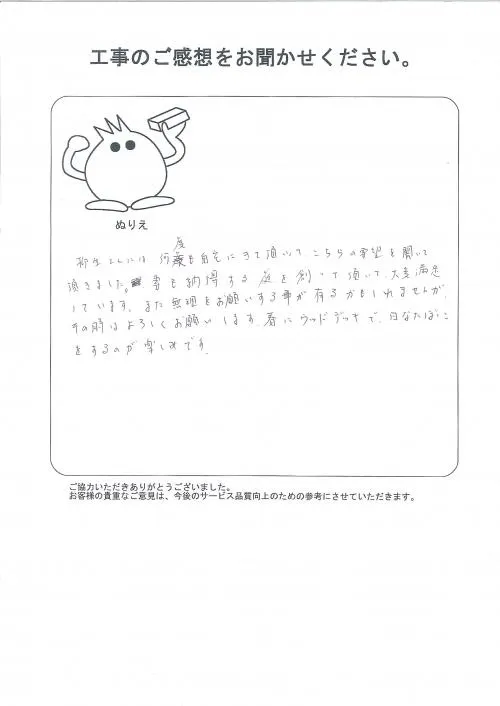 工事のご感想をお聞かせください。
ぬりえ
柳生さんには 何度も自宅にきて頂いて、こちらの希望を聞いて
頂きました。妻も納得する庭を創って頂いて、大変満足
しています。また無理をお願いする事が有るかもしれませんが、
その時はよろしくお願いします。春にウッドデッキで、日なたぼっこ
をするのが楽しみです。
ご協力いただきありがとうございました。
お客様の貴重なご意見は、今後のサービス品質向上のための参考にさせていただきます。